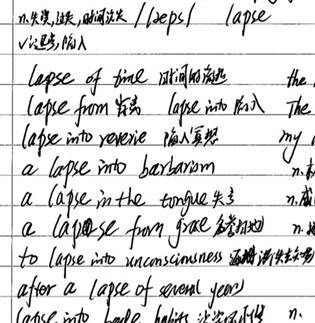 n.失误,过失,时间流失 /læps/ lapse
v.退步,陷入
lapse of time 时间的流逝 the
lapse from 背离 lapse into 陷入 The
lapse into reverie 陷入冥想 my
a lapse into barbarism n.
a lapse in the tongue 失言 n.
a lapse from grace 名誉扫地 n.
to lapse into unconsciousness
after a lapse of several years
lapse into habits n.